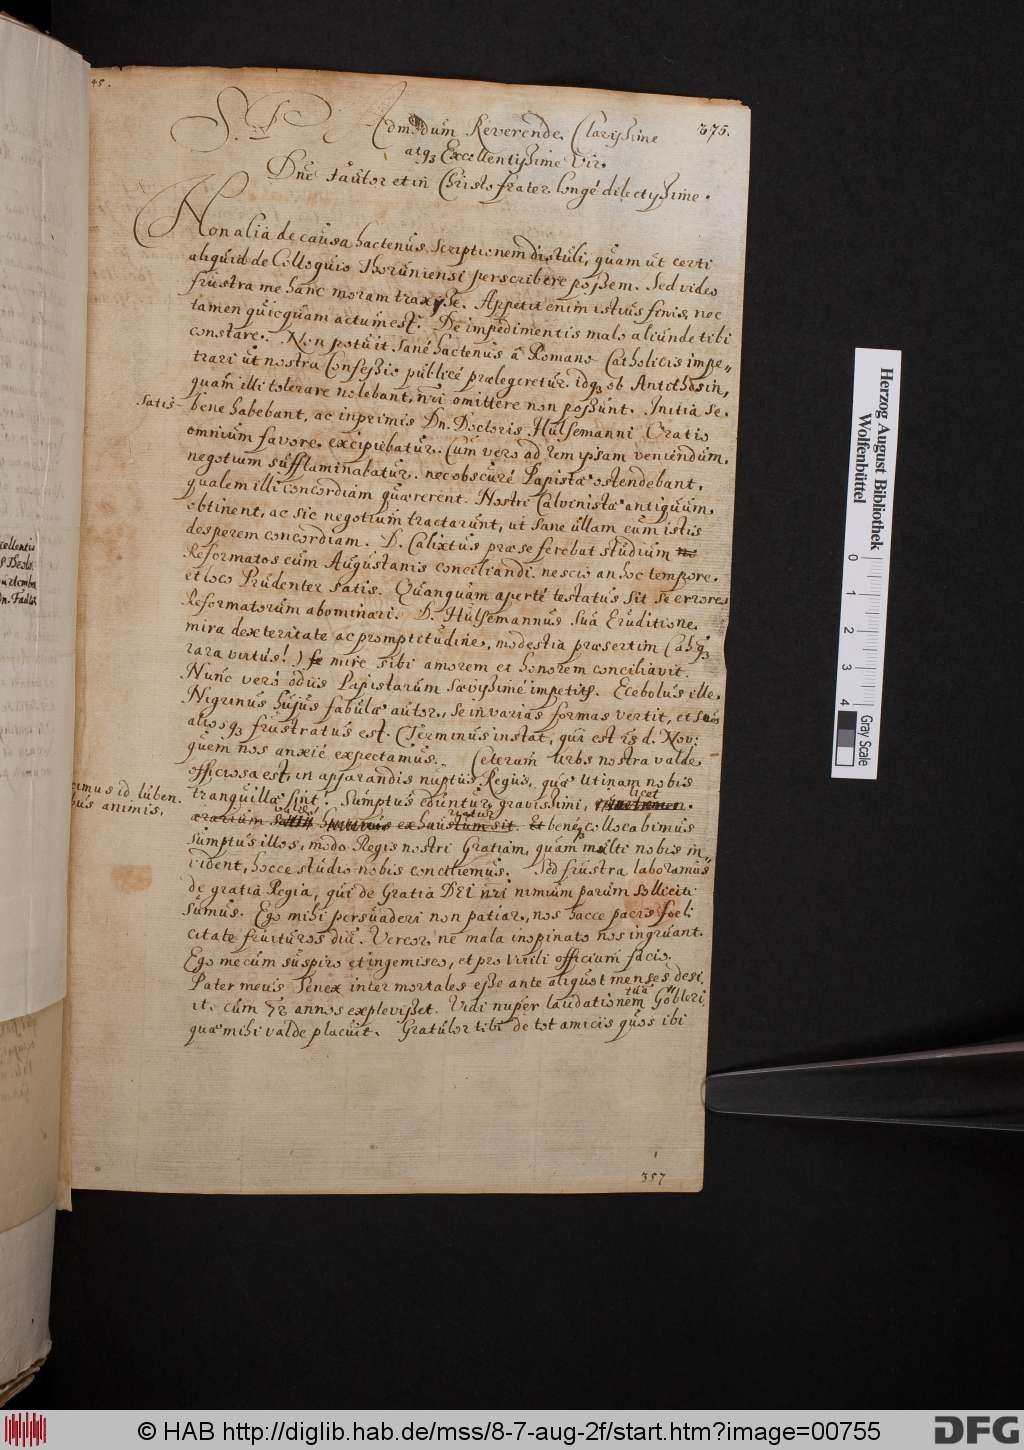 45.
375.
S. P. Admodum Reverende, Clarissime
atq3 Excellentissime Vir.
Dne Fautor et in Christo frater longé dilectissime.
Non aliâ de causa hactenus scriptionem distuli, quam ut certi
aliquid de Colloquio Thoruniensi perscribere possem. Sed video
frustra me hanc moram traxisse. Appetit enim istius finis, nec
tamen quicquam actum est. De impedimentis malo aliunde tibi
constare. Non potuit sané hactenus â Romano Catholicis impe„
trari ut nostra Confessio publicé praelegeretur idq3 ob Antithesin,
quam illi tolerare nolebant, nri omittere non possunt. Initia se.
satis
bene habebant, ac inprimis Dn. Doctoris Hülsemanni Oratio
omnium favore excipiebatur. Cum vero ad rem ipsam veniendum,
negotium sufflaminabatur. nec obscuré Papistae ostendebant,
qualem illi concordiam quaererent. Nostri Calvinistae antiquum
obtinent, ac sic negotium tractarunt, ut sane ullam cum istis
desperem concordiam. D. Calixtus prae se ferebat studium
Reformatos cum Augustanis conciliandi. nescio an hoc tempore
et loco Prudenter satis. Quanquam aperté testatus sit se errores
Reformatorum abominari. D. Hülsemannus suâ Eruditione
mira dexteritate ac promptitudine, modestia praesertim (
rara virtus!) mire sibi amorem et honorem conciliavit.
Nunc veró odiis Papistarum saevissimé impetitr. Ecebolus ille
Nigrinus hujus fabulae autor, se in varias formas vertit, et suos
aliosq3 frustratus est. (Terminus instat, qui est d. Nov:
quem nos anxié expectamus. Ceterum Urbs nostra valde
officiosa est, in apparandis nuptiis Regiis, quae utinam nobis
imus id luben.
bus animis.
tranquillae sint. Sumptus eduntur gravissimi, licet
aerarium valde exhaustum sit. Et bené collocabimus
sumptus illos, modo Regis nostri Gratiam, quam multi nobis in„
vident, hocce studio nobis conciliemus. Sed frustra laboramus
de gratiâ Regia, qui de Gratiâ DEI nri nimium parum solliciti
sumus. Ego mihi persuaderi non patiar, nos hacce pacis foeli
citate fruituros diu. Vereor ne mala inopinato nos ingruant.
Ego mecum suspiro et ingemisco, et pro virili officium facio.
Pater meus Senex inter mortales esse ante aliquot menses desi
it, cum 72 annos explevisset. Vidi nuper laudationem tuâ Göbleri,
quae mihi valde placuit. Gratulor tibi de tot amiciis quos ibi
357
cellentis
Herzog August Bibliothek
Wolfenbüttel
0 1 2 3 4
Gray Scale
© HAB http://diglib.hab.de/mss/8-7-aug-2f/start.htm?image=00755
DFG